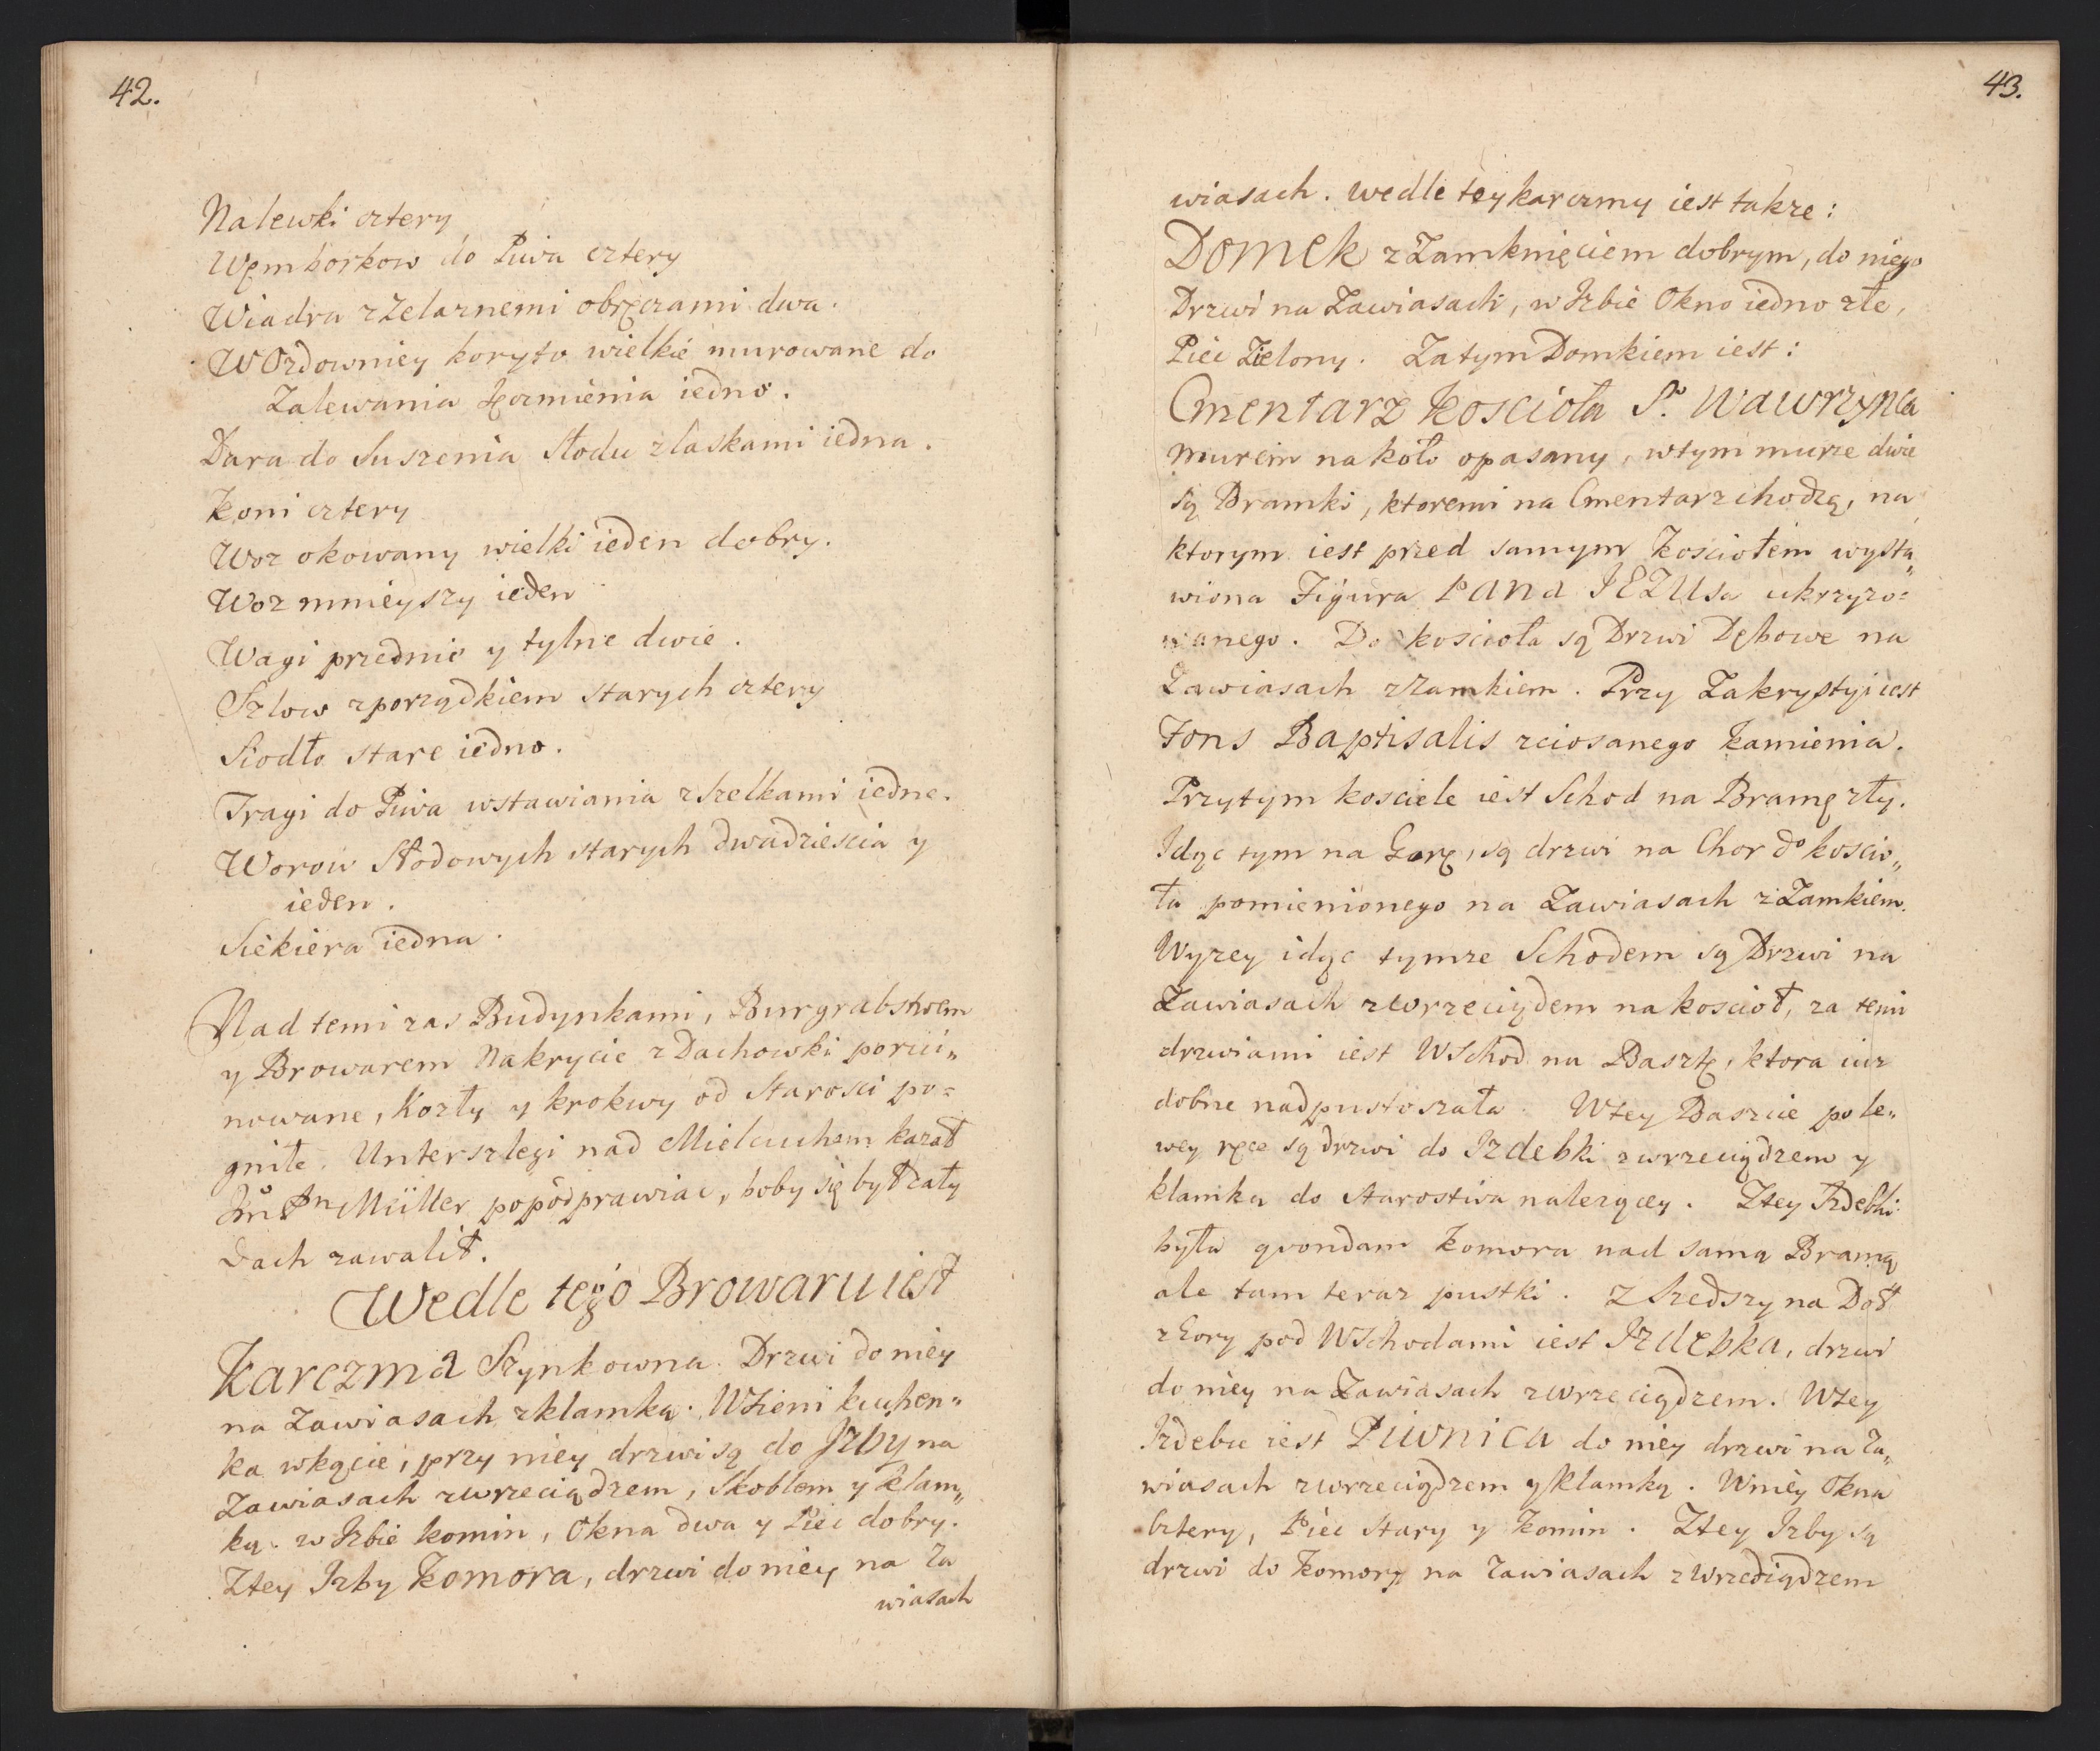 42.
Nalewki cztery
Węmborkow do Piwa cztery
Wiadra z Zelaznemi obręczami dwa.
W Ozdowniey koryto wielkie murowane do
Zalewania Jęczmienia iedno.
Dara do Suszenia Słodu z laskami iedna.
Koni cztery
Woz okowany wielki ieden dobry.
Woz mnieyszy ieden
Wagi przednie y tylne dwie.
Szlow z porządkiem starych cztery
Siodło stare iedno.
Tragi do Piwa wstawiania z Szelkami iedne.
Worow Słodowych starych dwadziescia y
ieden.
Siekiera iedna.
Nad temi zas Budynkami, Burgrabstwem
y Browarem Nakrycie z Dachowki porui„
nowane, Kozły y krokwy od Starosci po=
gniłe. Unterszlegi nad Mielcuchem kazał
Jm Pn Müller popodprawiac, boby się był cały
Dach zawalił.
Wedle tego Browaru iest
Karczma Szynkowna. Drzwi do niey
na Zawiasach z klamką. W Sieni kuchen„
ka w kącie, przy niey drzwi są do Izby na
Zawiasach z wrzeciądzem, Skoblem y klam„
ką. w Izbie komin, Okna dwa y Piec dobry.
Z tey Izby Komora, drzwi do niey na Za
wiasach
43.
wiasach. wedle tey karczmy iest takze:
Domek z Zamknięciem dobrym, do niego
Drzwi na Zawiasach, w Izbie Okno iedno złe,
Piec Zielony. Za tym Domkiem iest:
Cmentarz Koscioła S. Wawrzynca
murem nakoło opasany, w tym murze dwie
są Bramki, ktoremi na Cmentarz chodzą, na
ktorym iest przed samym Kosciołem wysta„
wiona Figura Pana JEZUsa ukrzyzo=
wanego. Do koscioła są Drzwi Dębowe na
Zawiasach z Zamkiem. Przy Zakrystyi iest
Fons Baptisalis z ciosanego Kamienia.
Przy tym kosciele iest Schod na Bramę zły.
Idąc tym na Gorę, są drzwi na Chor do koscio„
ła pomienionego na Zawiasach z Zamkiem.
Wyzey idąc tymze Schodem są Drzwi na
Zawiasach z wrzeciądem na koscioł, za temi
drzwiami iest WSchod na Basztę, ktora iuz
dobrze nadpustoszała. W tey Baszcie po le„
wey ręce są drzwi do Izdebki z wrzeciądzem y
klamką do Starostwa nalezącey. Z tey Izdebki
była qvondam Komora nad samą Bramą
ale tam teraz pustki. Z Szedszy na Doł
z Gory pod WSchodami iest Izdebka, drzwi
do niey na Zawiasach z wrzeciądzem. W tey
Izdebce iest Piwnica do niey drzwi na Za„
wiasach z wrzeciądzem y klamką. W niey Okna
Cztery, Piec Stary y Komin. Z tey Izby są
drzwi do Komory na Zawiasach z Wrzediądzem